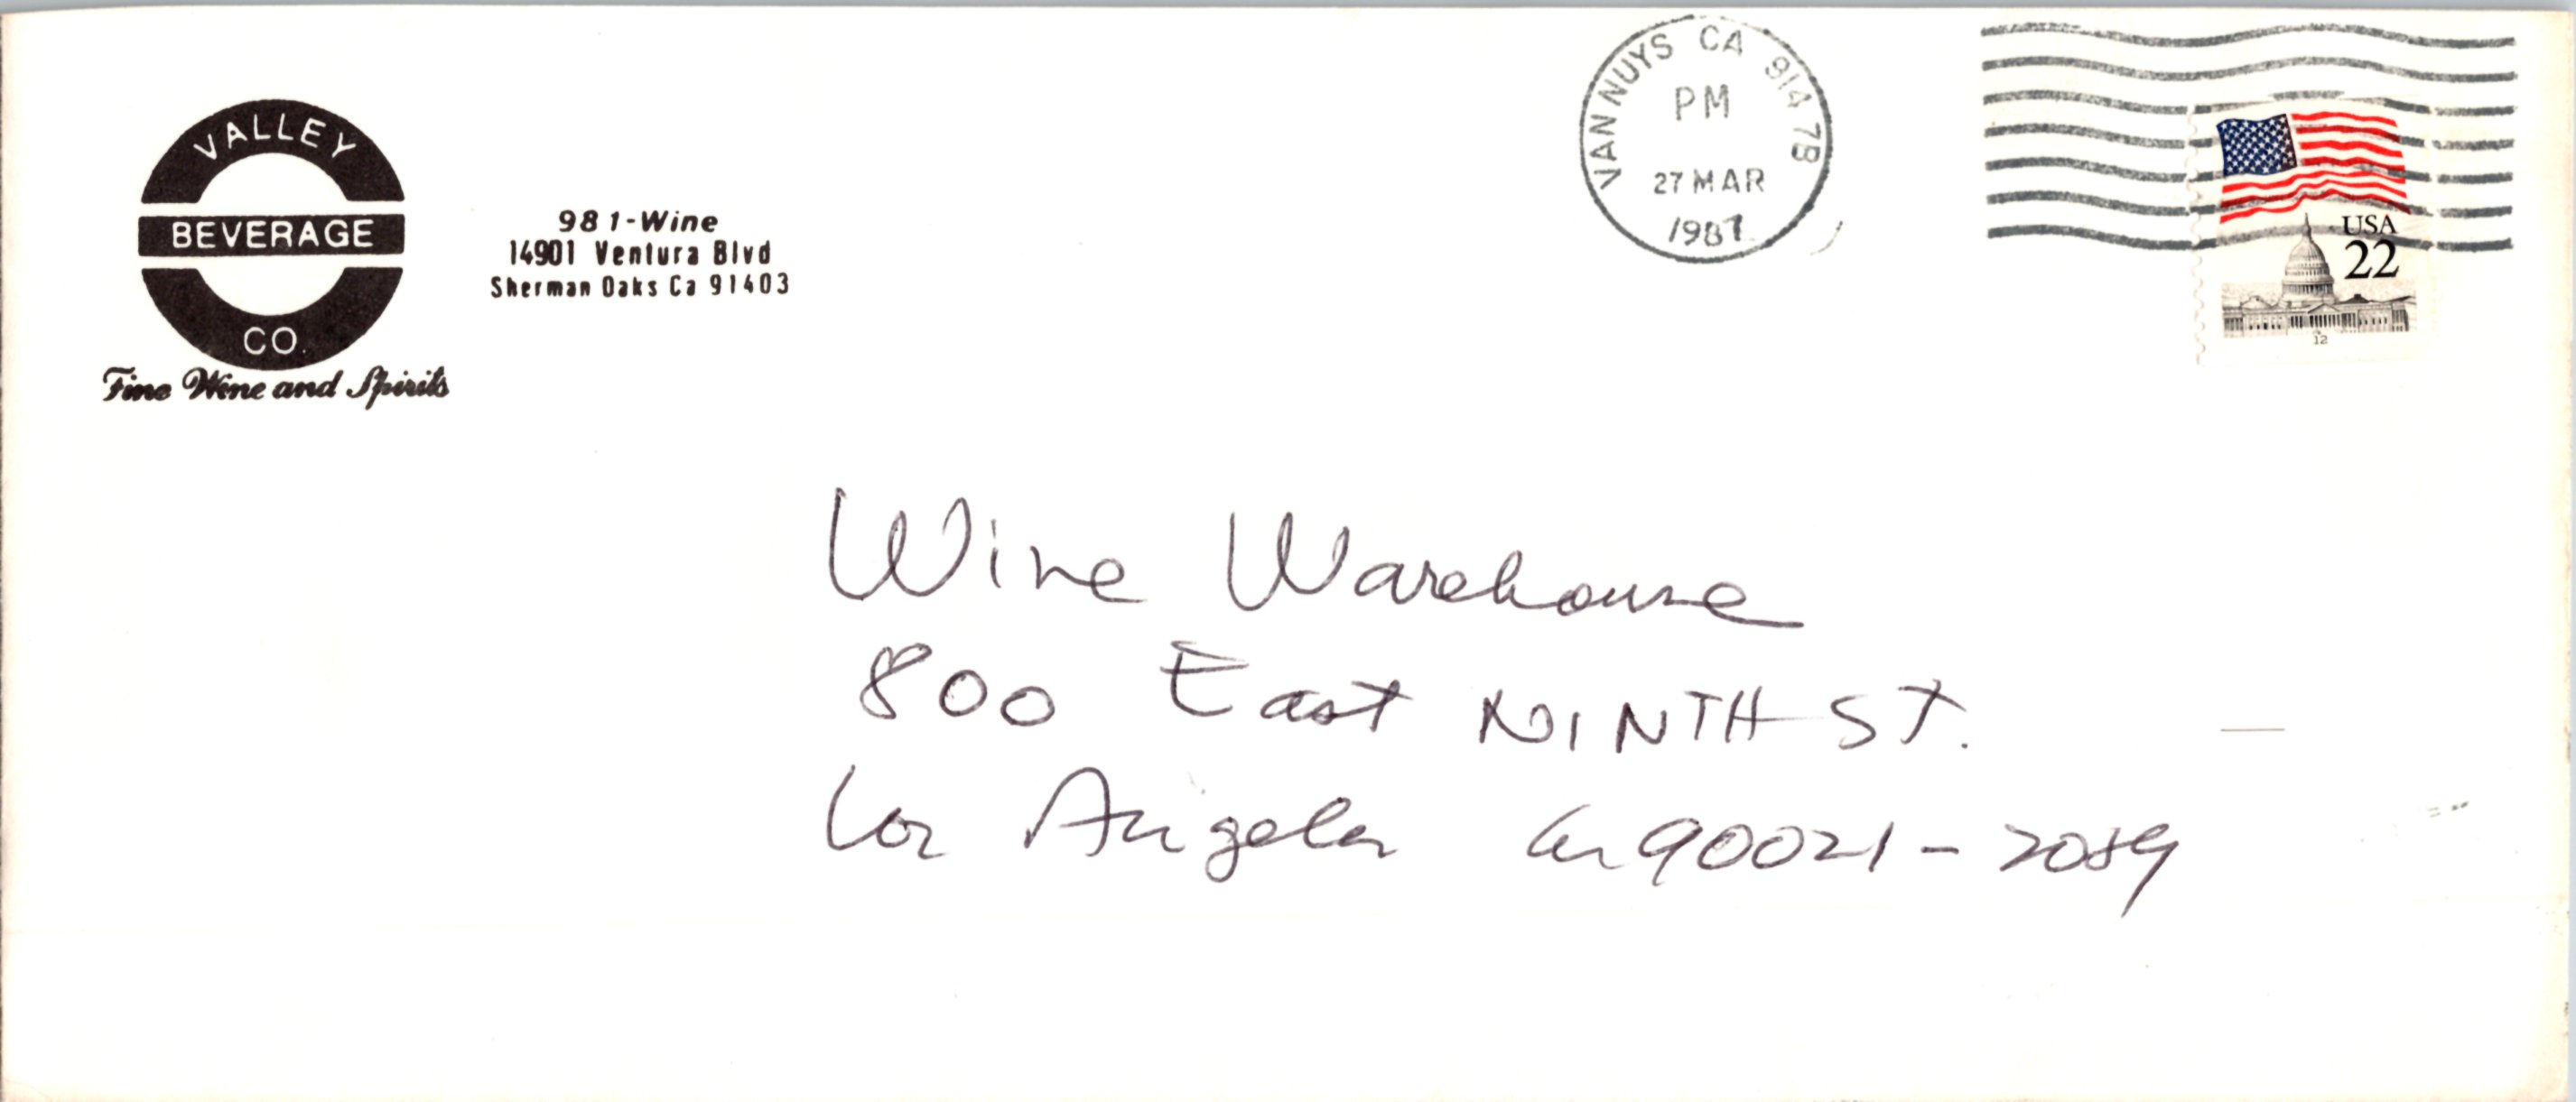 VALLEY
BEVERAGE
CO.
Fine Wine and Spirits
981-Wine
14901 Ventura Blvd
Sherman Oaks Ca 91403
VAN NUYS CA 914 7B
PM
27 MAR
1987
USA
22
12
Wine Warehouse
800 East NINTH ST.
Los Angeles Ca 90021-2089